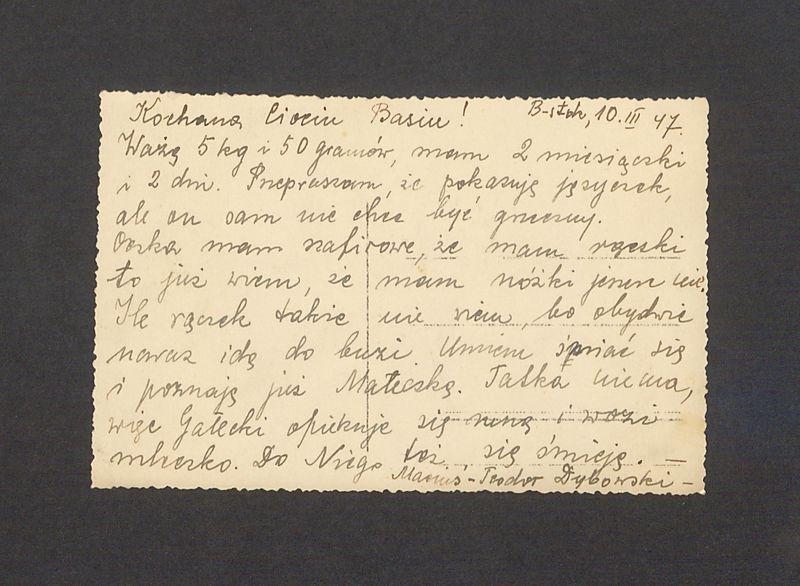 Kochana Ciociu Basiu! B-stok, 10.III 47.
Ważę 5 kg i 50 gramów, mam 2 miesiączki
i 2 dni. Przepraszam, że pokazuję języczek,
ale on sam nie chce być grzeczny.
Oczka mam szafirowe, że mam rączki
to już wiem, że mam nóżki jeszcze nie.
Ile rączek także nie wiem, bo obydwie
naraz idą do buzi. Umiem śmiać się
i poznaję już Mateczkę. Tatka niema,
więc Gałecki opiekuje się mną i wozi
mleczko. Do Niego też się śmieję. —
Macius - Teodor Dyborski -